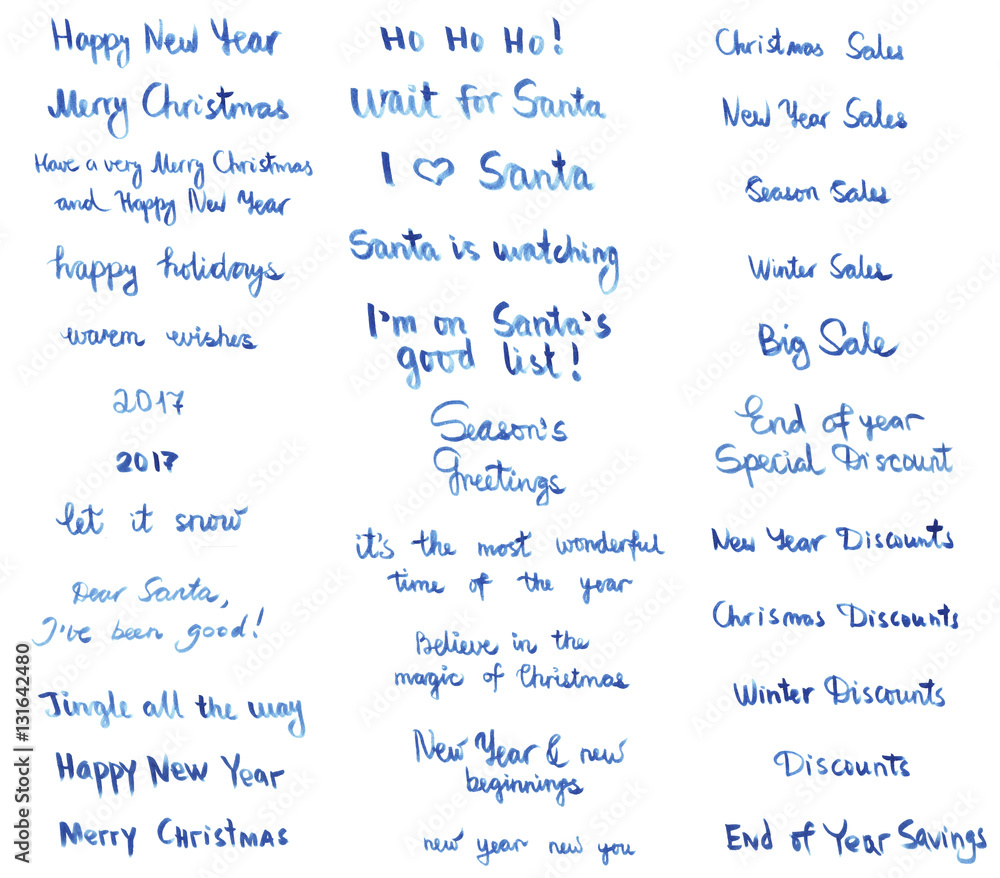 Happy New Year
Merry Christmas
Have a very Merry Christmas
and Happy New Year
happy holidays
warm wishes
2017
2017
let it snow
Dear Santa,
I've been good!
Jingle all the way
Happy New Year
Merry Christmas
Ho Ho Ho!
Wait for Santa
I ♡ Santa
Santa is watching
I'm on Santa's
good list!
Season's
Greetings
it's the most wonderful
time of the year
Believe in the
magic of Christmas
New Year & new
beginnings
new year new you
Christmas Sales
New Year Sales
Season Sales
Winter Sales
Big Sale
End of year
Special Discount
New Year Discounts
Chrismas Discounts
Winter Discounts
Discounts
End of Year Savings
Adobe Stock | #131642480